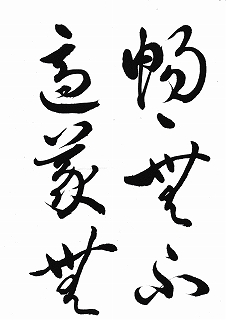 暢無不
適蒙無